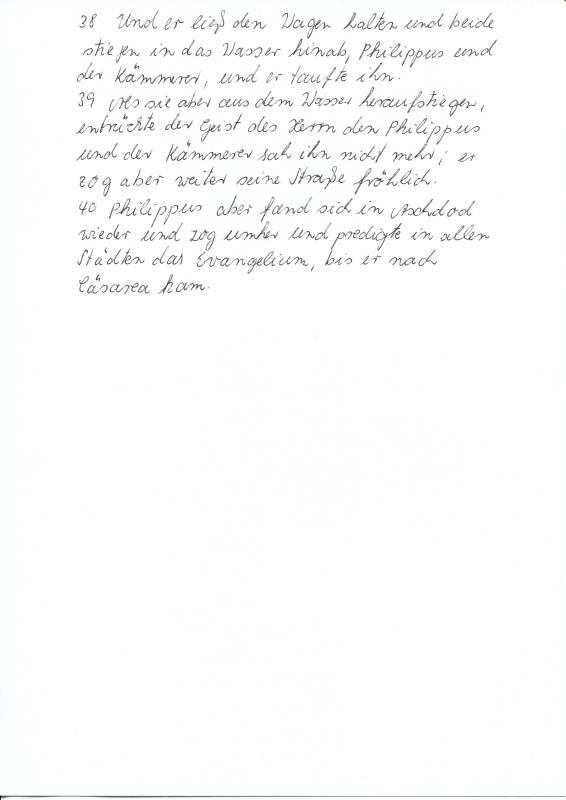 38 Und er ließ den Wagen halten und beide
stiegen in das Wasser hinab, Philippus und
der Kämmerer, und er taufte ihn.
39 Als sie aber aus dem Wasser heraufstiegen,
entrückte der Geist des Herrn den Philippus
und der Kämmerer sah ihn nicht mehr; er
zog aber weiter seine Straße fröhlich.
40 Philippus aber fand sich in Aschdod
wieder und zog umher und predigte in allen
Städten das Evangelium, bis er nach
Cäsarea kam.